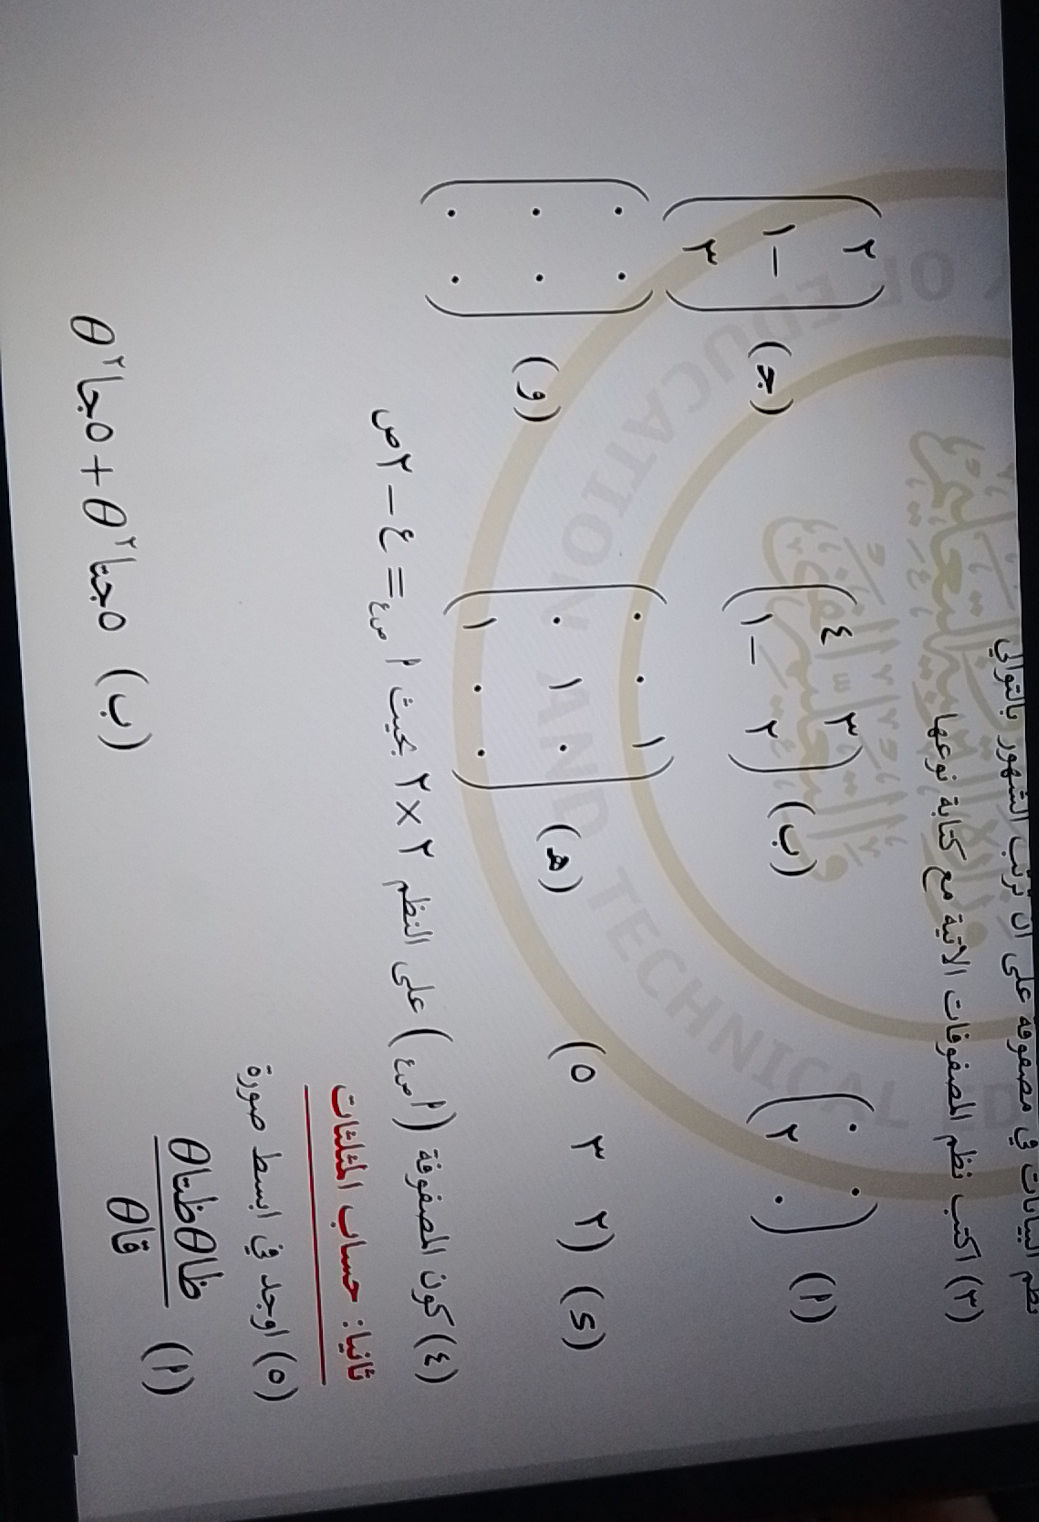 نظم البيانات في مصفوفة على ان ترتب الشهور بالتوالي
(٣) اكتب نظم المصفوفات الاتية مع كتابة نوعها
(٢) (٠ ٠
٢ ٠) (ب) (٣ ٤
٢ -١) (جـ) (٢
-١
٣)
(د) (٢ ٣ ٥) (هـ) (١ ٠ ٠
٠ ١ ٠
٠ ٠ ١) (و) (٠ ٠
٠ ٠
٠ ٠)
(٤) كون المصفوفة (٢ص ع) على النظم ٢ × ٢ بحيث ٢ص ع = ع - ٢ص
ثانيا: حساب المثلثات
(٥) اوجد في ابسط صورة
(٢) ظاθظتاθ
قاθ
(ب) ٥جتا²θ + ٥جا²θ
OF EDUCATION AND TECHNICAL ED